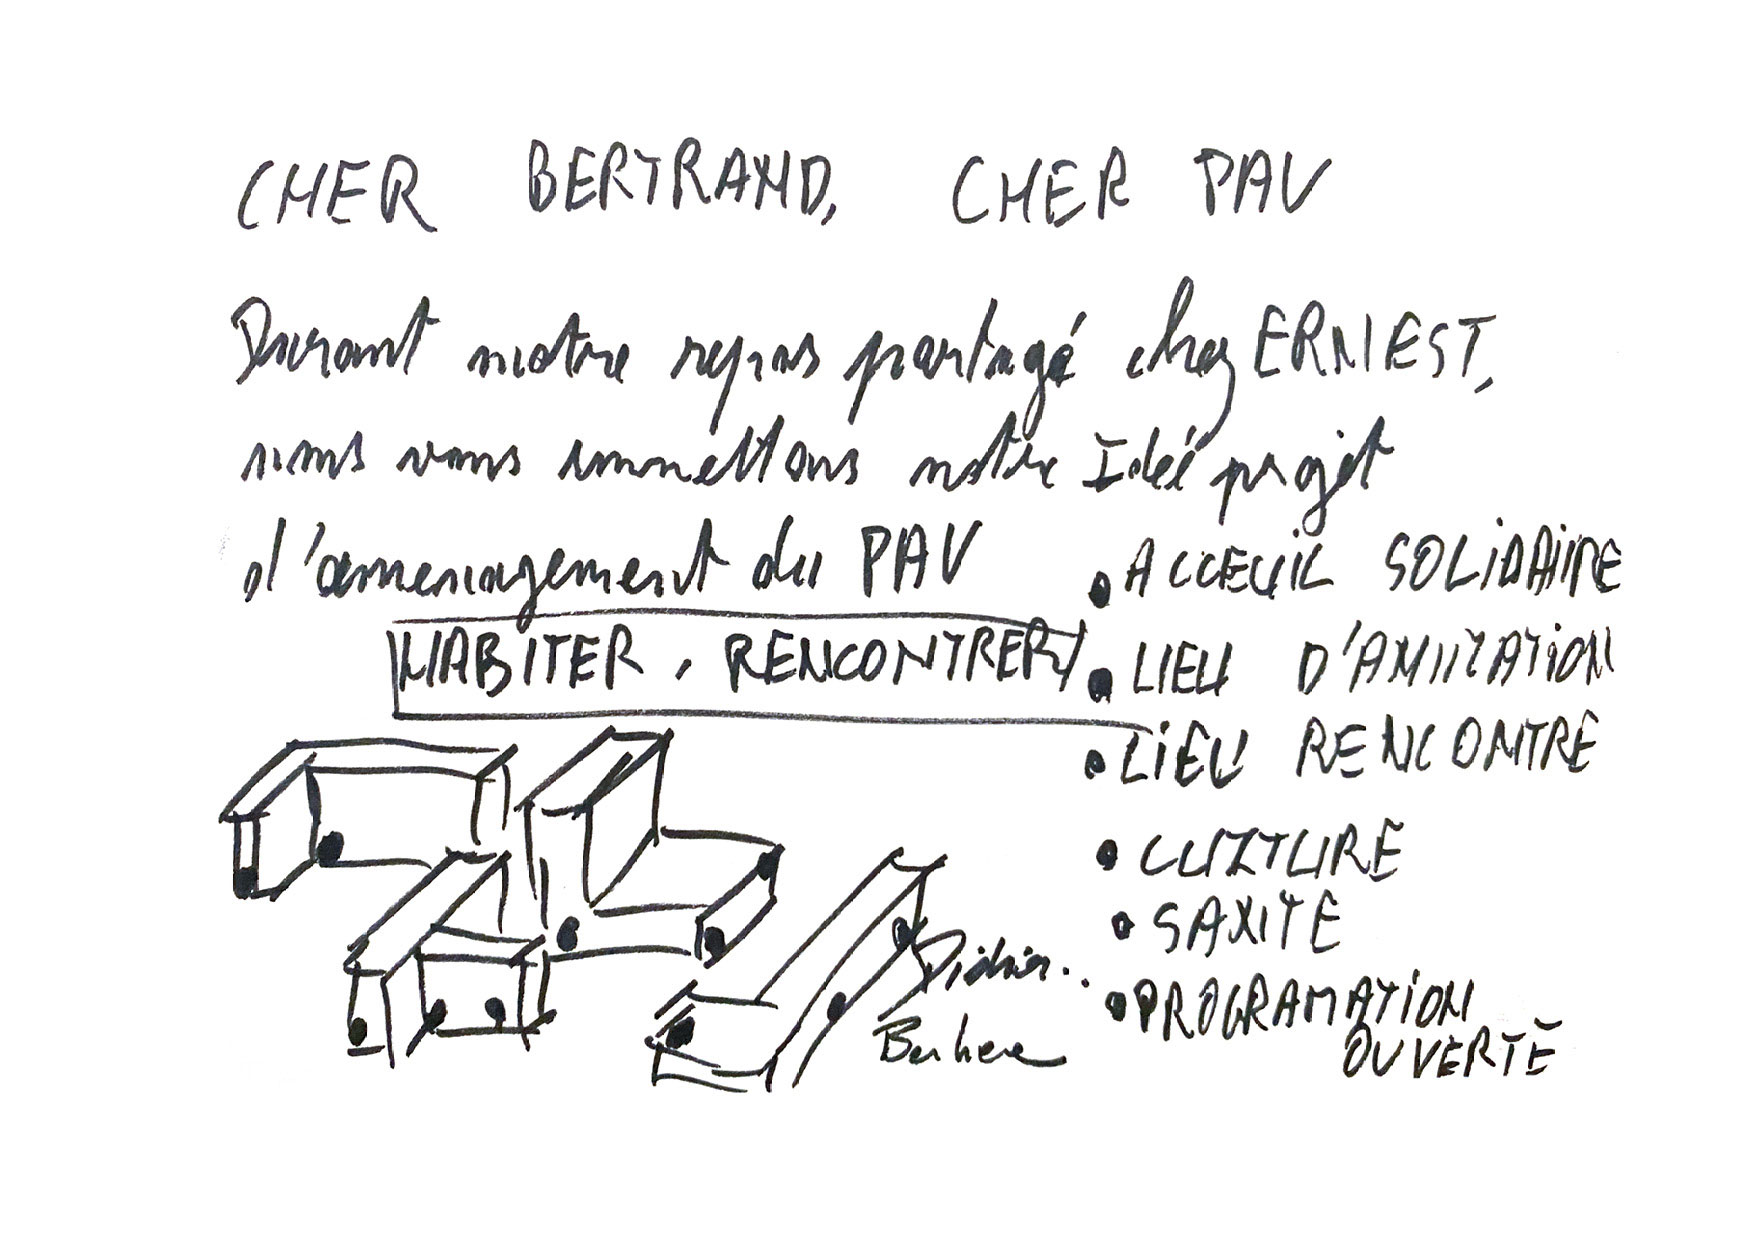 CHER BERTRAND, CHER PAV
Durant notre repas partagé chez ERNIEST,
nous vous remettons notre Idée projet
d'amenagement du PAV
HABITER, RENCONTRER
• ACCEUIL SOLIDAIRE
• LIEU D'AMI
• LIEU RENCONTRE
• CULTURE
• SAXITE
• PROGRAMATION
OUVERTE
Didier